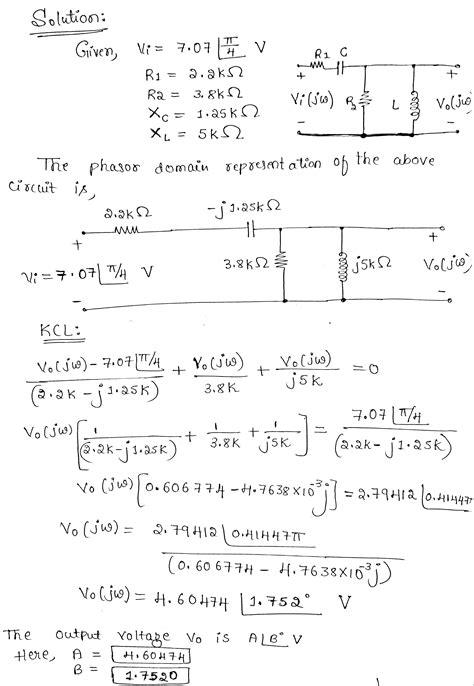 Solution:
Given, Vi = 7.07 ∠π/4 V
R1 = 2.2KΩ
R2 = 3.8KΩ
XC = 1.25KΩ
XL = 5KΩ
R1 C
+ +
Vi(jω) R2 L Vo(jω)
- -
The phasor domain representation of the above
circuit is,
2.2KΩ -j1.25KΩ
+ +
Vi = 7.07∠π/4 V 3.8KΩ j5KΩ Vo(jω)
- -
KCL:
(Vo(jω) - 7.07∠π/4)/(2.2K - j1.25K) + Vo(jω)/3.8K + Vo(jω)/j5K = 0
Vo(jω)[1/(2.2K-j1.25K) + 1/3.8K + 1/j5K] = 7.07∠π/4/(2.2K - j1.25K)
Vo(jω)[0.606774 - 4.7638×10⁻³j] = 2.79412∠0.41447π
Vo(jω) = 2.79412∠0.41447π/(0.606774 - 4.7638×10⁻³j)
Vo(jω) = 4.60474 ∠1.752° V
The output voltage Vo is A∠B° V
Here, A = 4.60474
B = 1.7520